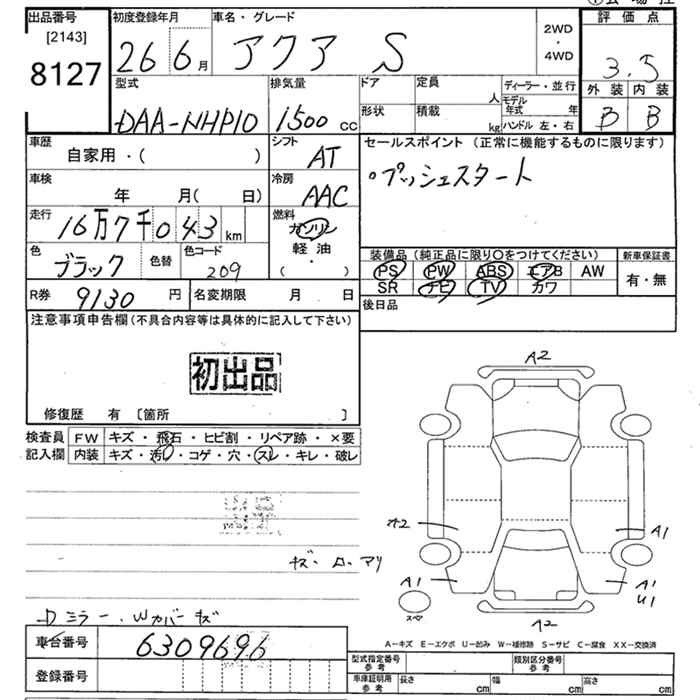 出品番号
[2143]
8127
初度登録年月
26 6月
車名・グレード
アクア S
2WD
・
4WD
評価点
3.5
外装 内装
B B
型式
DAA-NHP10
排気量
1500 CC
ドア
形状
定員
人
積載
kg
ディーラー・並行
モデル年式 年
ハンドル 左・右
車歴
自家用・( )
シフト
AT
車検
年 月(日)
冷房
AAC
走行
16万7千043 km
燃料
ガソリン
・
軽油
・
( )
色
ブラック
色替
色コード
209
R券
9130 円
名変期限 月 日
セールスポイント (正常に機能するものに限ります)
・プッシュスタート
装備品 (純正品に限り○をつけてください)
PS PW ABS エアB AW
SR ナビ TV カワ
新車保証書
有・無
後日品
注意事項申告欄(不具合内容等は具体的に記入して下さい)
初出品
修復歴 有 [箇所 ]
検査員記入欄
FW キズ・飛石・ヒビ割・リペア跡・×要
内装 キズ・汚れ・コゲ・穴・スレ・キレ・破レ
Dミラー、Wカバーキズ
車台番号
6309696
登録番号
A2
A2
A1
A1
A1
U1
スペア
A2
A－キズ E－エクボ U－凹み W－補修跡 S－サビ C－腐食 XX－交換済
型式指定番号 参考
類別区分番号 参考
車庫証明用 参考
長さ cm
幅 cm
高さ cm